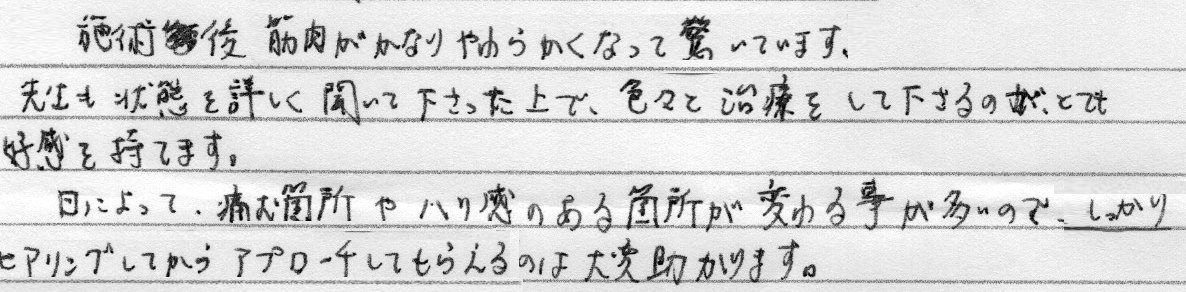 施術後 筋肉がかなりやわらかくなって驚いています。
先生も状態を詳しく聞いて下さった上で、色々と治療をして下さるのが、とても
好感を持てます。
日によって、痛む箇所やハリ感のある箇所が変わる事が多いので、しっかり
ヒアリングしてからアプローチしてもらえるのは大変助かります。